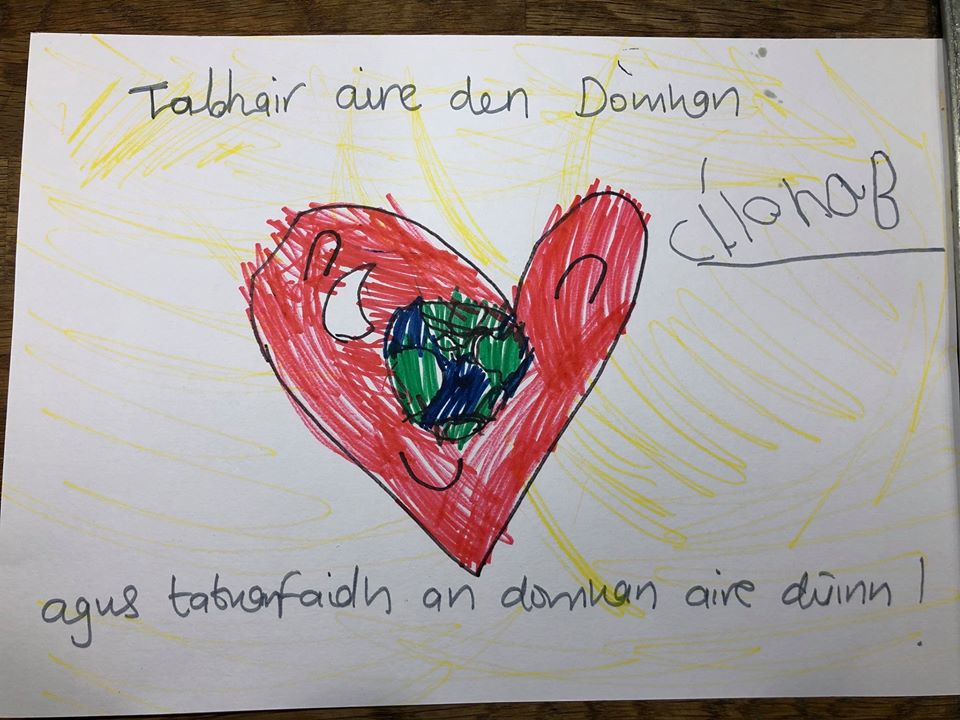 Tabhair aire den Domhan
agus tabharfaidh an domhan aire dúinn!